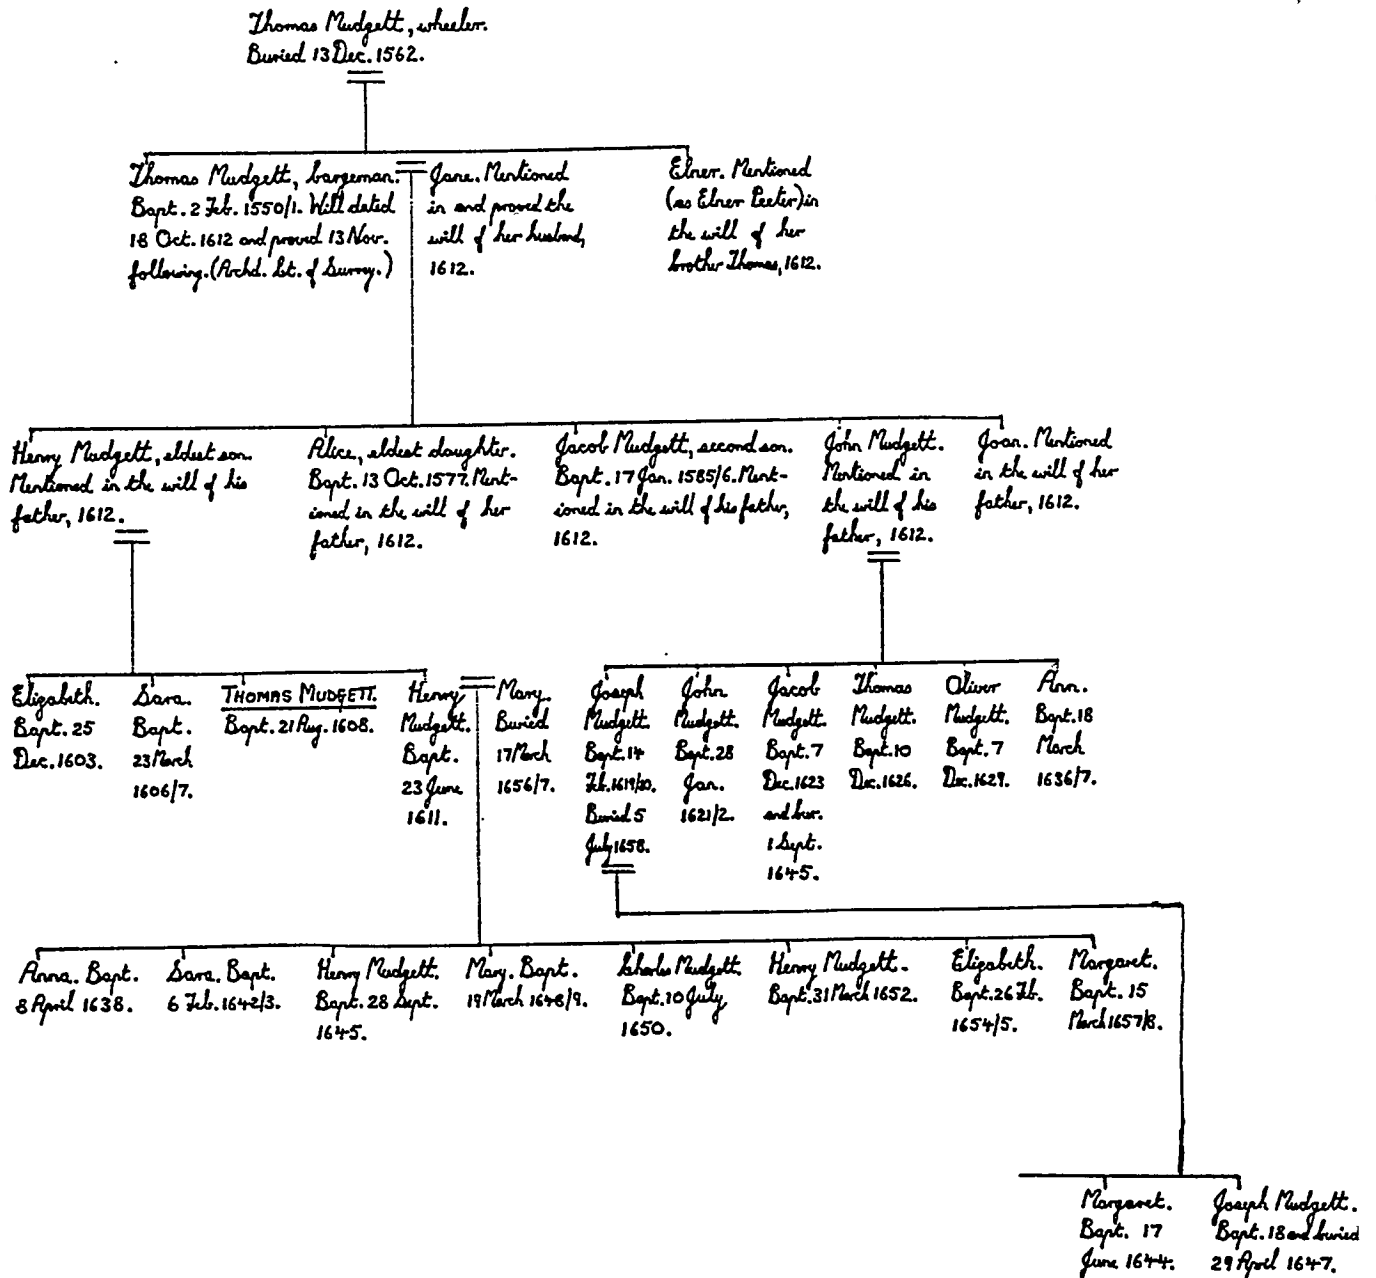 Thomas Mudgett, wheeler.
Buried 13 Dec. 1562.
Thomas Mudgett, bargeman.
Bapt. 2 Feb. 1550/1. Will dated
18 Oct. 1612 and proved 13 Nov.
following. (Archd. Ct. of Surrey.)
Jane. Mentioned
in and proved the
will of her husband,
1612.
Elner. Mentioned
(as Elner Peeter) in
the will of her
brother Thomas, 1612.
Henry Mudgett, eldest son.
Mentioned in the will of his
father, 1612.
Alice, eldest daughter.
Bapt. 13 Oct. 1577. Ment-
ioned in the will of her
father, 1612.
Jacob Mudgett, second son.
Bapt. 17 Jan. 1585/6. Ment-
ioned in the will of his father,
1612.
John Mudgett.
Mentioned in
the will of his
father, 1612.
Joan. Mentioned
in the will of her
father, 1612.
Elizabeth.
Bapt. 25
Dec. 1603.
Sara.
Bapt.
23 March
1606/7.
THOMAS MUDGETT.
Bapt. 21 Aug. 1608.
Henry
Mudgett.
Bapt.
23 June
1611.
Mary.
Buried
17 March
1656/7.
Joseph
Mudgett.
Bapt. 14
Feb. 1619/20.
Buried 5
July 1658.
John
Mudgett.
Bapt. 28
Jan.
1621/2.
Jacob
Mudgett.
Bapt. 7
Dec. 1623
and bur.
1 Sept.
1645.
Thomas
Mudgett.
Bapt. 10
Dec. 1626.
Oliver
Mudgett.
Bapt. 7
Dec. 1629.
Ann.
Bapt. 18
March
1636/7.
Anna. Bapt.
8 April 1638.
Sara. Bapt.
6 Feb. 1642/3.
Henry Mudgett.
Bapt. 28 Sept.
1645.
Mary. Bapt.
19 March 1648/9.
Charles Mudgett.
Bapt. 10 July
1650.
Henry Mudgett.
Bapt. 31 March 1652.
Elizabeth.
Bapt. 26 Feb.
1654/5.
Margaret.
Bapt. 15
March 1657/8.
Margaret.
Bapt. 17
June 1644.
Joseph Mudgett.
Bapt. 18 and buried
29 April 1647.